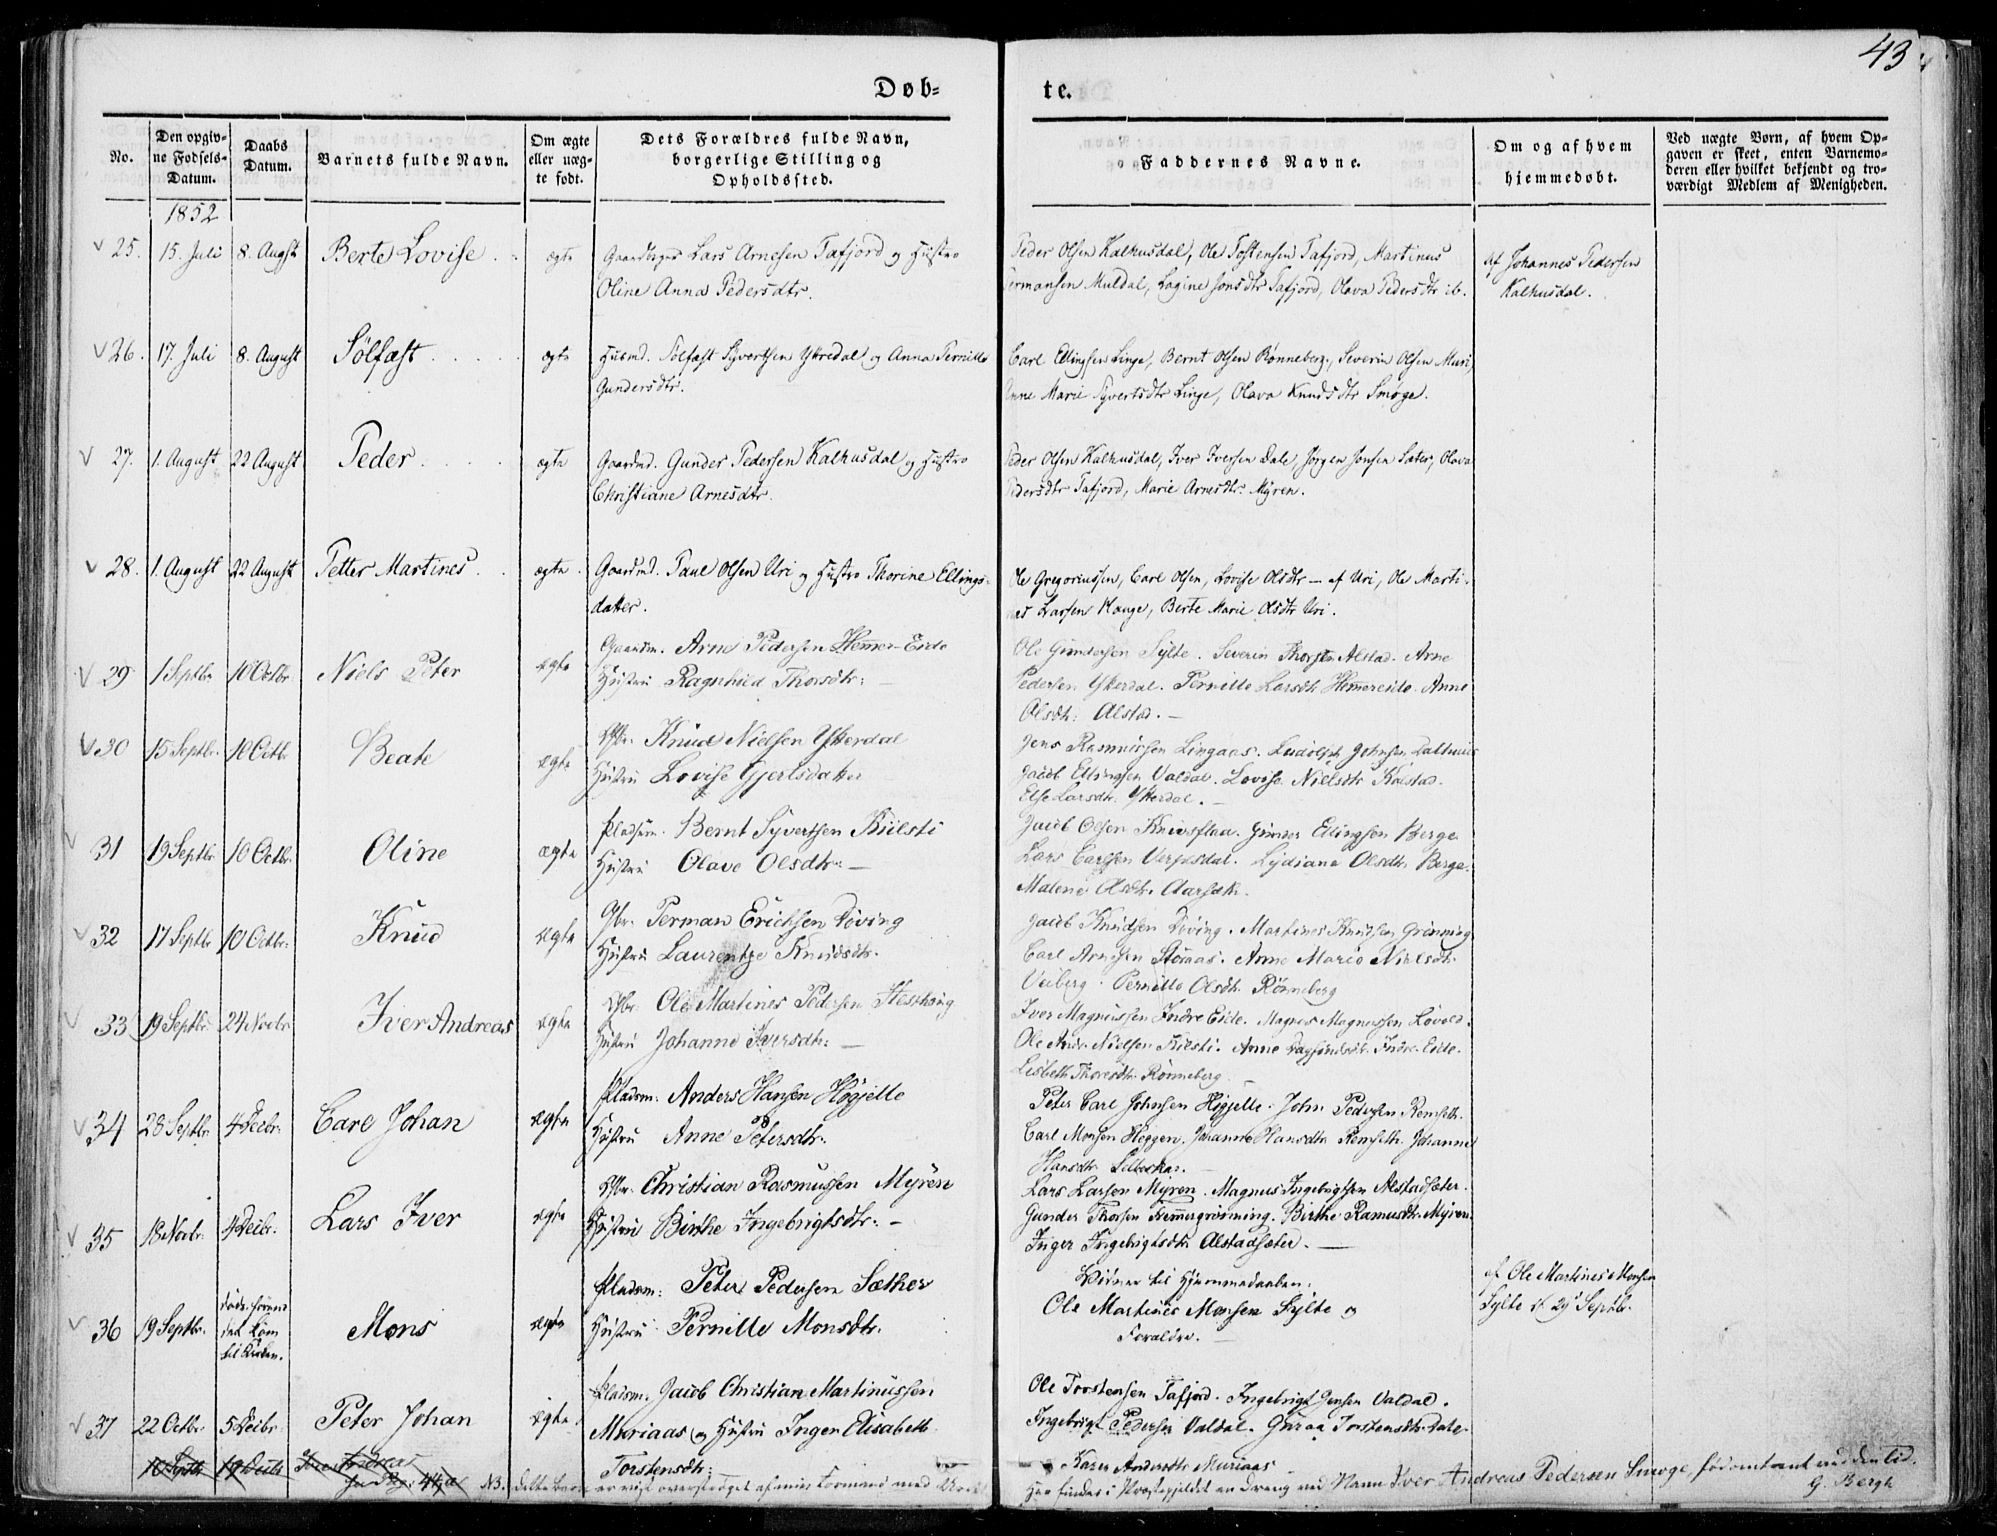 43
Døb-
te.
No.
Den opgivne Fødsels-Datum.
Daabs Datum.
Barnets fulde Navn.
Om ægte eller uægte født.
Dets Forældres fulde Navn, borgerlige Stilling og Opholdssted.
Faddernes Navne.
Om og af hvem hjemmedøbt.
Ved uægte Børn, af hvem Opgaven er skeet, enten Barnemoderen eller hvilket bekjendt og troværdigt Medlem af Menigheden.
1852
25. 15. Juli 8. Augst Berte Lovise ægte Lars Arnesen Tafjord og Hustro
Oline Anna Pedersdtr.
Peder Olsen Kalhusdal, Ole Tostensen Tafjord, Martinus
Muldal, Lagine Jonsdtr Tafjord, Olava Pedersdtr ib.
af Johannes Pedersen
Kalhusdal.
26. 17. Juli 8. August Sølfæst ægte Husmd. Sølfæst Syvertsen Ytredal og Anna Pernille
Gundersdtr.
Carl Ellingsen Linge, Bernt Olsen Rønneberg, Severin Olsen Muri,
Anne Marie Syvertsdtr Linge, Olava Knudsdtr Smøge.
27. 1. August 22 August Peder ægte Gaardmd. Gunder Pedersen Kalhusdal og Hustro
Christiane Arnesdtr.
Peder Olsen Kalhusdal, Iver Iversen Dale, Jørgen Jonsen Sæter, Olava
Pedersdtr Tafjord, Marie Arnesdtr Myren.
28. 1. August 22 August Petter Martines ægte Gaardmd. Paul Olsen Uri og Hustro Thorine Ellings-
datter.
Ole Gregoriussen, Carl Olsen, Lovise Olsdtr — af Uri, Ole Marti-
nes Larsen Hauge, Berte Marie Olsdtr Uri.
29 1 Septbr 10 Octbr Niels Peter ægte Gaardm. Arne Pedersen Hemmer-Eide
Hustru Ragnhild Thorsdtr: —
Ole Gundersen Sylte. Severin Thorsen Alstad. Arne
Pedersen Ytterdal. Pernille Larsdtr Hemmereide. Anne
Olsdtr: Alstad. —
30 15 Septbr. 10 Octbr Beate ægte Gbr. Knud Nielsen Ytterdal
Hustru Lovise Gjertsdatter
Jens Rasmussen Lingaas. Ludolph Johnsen Dalhuus
Jacob Ellingsen Valdal. Lovise Nielsdtr Kolstad.
Else Larsdtr. Ytterdal. —
31 19 Septbr 10 Octbr. Oline ægte Pladsm. Bernt Syvertsen Kilsti
Hustru Olave Olsdtr: —
Jacob Olsen Knivsflaa. Gunner Ellingsen Berge.
Lars Carlsen Verpesdal. Lydiane Olsdtr. Berge.
Malene Olsdtr. Aarsæth.
32 17 Septbr 10 Octbr: Knud ægte Gbr. Perman Erichsen Døving
Hustru Laurentze Knudsdtr.
Jacob Knudsen Døving. Martines Knutsen Grønning
Carl Arnesen Storaas. Anne Marie Nielsdtr.
Veiberg. Pernille Olsdtr. Rønneberg
33 19 Septbr: 24 Novbr Iver Andreas ægte Gbr. Ole Martines Pedersen
Hustru Johanne Iversdtr: —
Iver Magnussen Indre Eide. Magnes Magnussen Løvold.
Ole Andr. Nielsen Kilsti. Anne Dagfindsdtr. Indre-Eide.
Lisbeth Thoresdtr. Rønneberg
34 28 Septbr 4 Decbr. Carl Johan ægte Pladsm: Anders Hansen Høgjelle
Hustru Anne Petersdtr.
Peter Carl Johnsen Høgjelle. John Pedersen Remseth.
Carl Monsen Heggen. Johanne Hansdtr Remseth. Johanne
Hansdtr. Selboskar. —
35 18 Novbr. 4 Decbr. Lars Iver ægte Gbr. Christian Rasmussen Myren
Hustru Birthe Ingebrigtsdtr: —
Lars Larsen Myren. Magnus Ingebrigtsen Alstadsæter.
Gunder Thorsen Hemmergrønning. Birthe Rasmusdtr. Myren
Inger Ingebrigtsdtr Alstadsæter. —
36 19 Septbr. døde førend det kom til Kirken. Mons ægte Pladsm: Peter Pedersen Sæther
Hustru Pernille Monsdtr.
Vidner til Hjemmedaaben:
Ole Martines Monsen Sylte og
Forældre.
af Ole Martines Monsen
Sylte d. 29 Septbr.
37 22 Octbr. 5 Decbr. Peter Johan ægte Pladsm. Jacob Christian Martinussen
Muriaas og Hustru Inger Elisabeth
Torstensdtr:
Ole Torstensen Tafjord. Ingebrigt Jensen Valdal.
Ingebrigt Pedersen Valdal. Guraa Torstensdtr. Dale.
Karen Andersdtr Muriaas
10 Septbr 19 Decbr Iver Andreas
NB. dette Barn er vist overstrøget af min Formand med
Her findes i Præstegjeldet en Dreng ved Navn Iver Andreas Pedersen Smoge, født omtrent ved den Tid.
G. Bergh